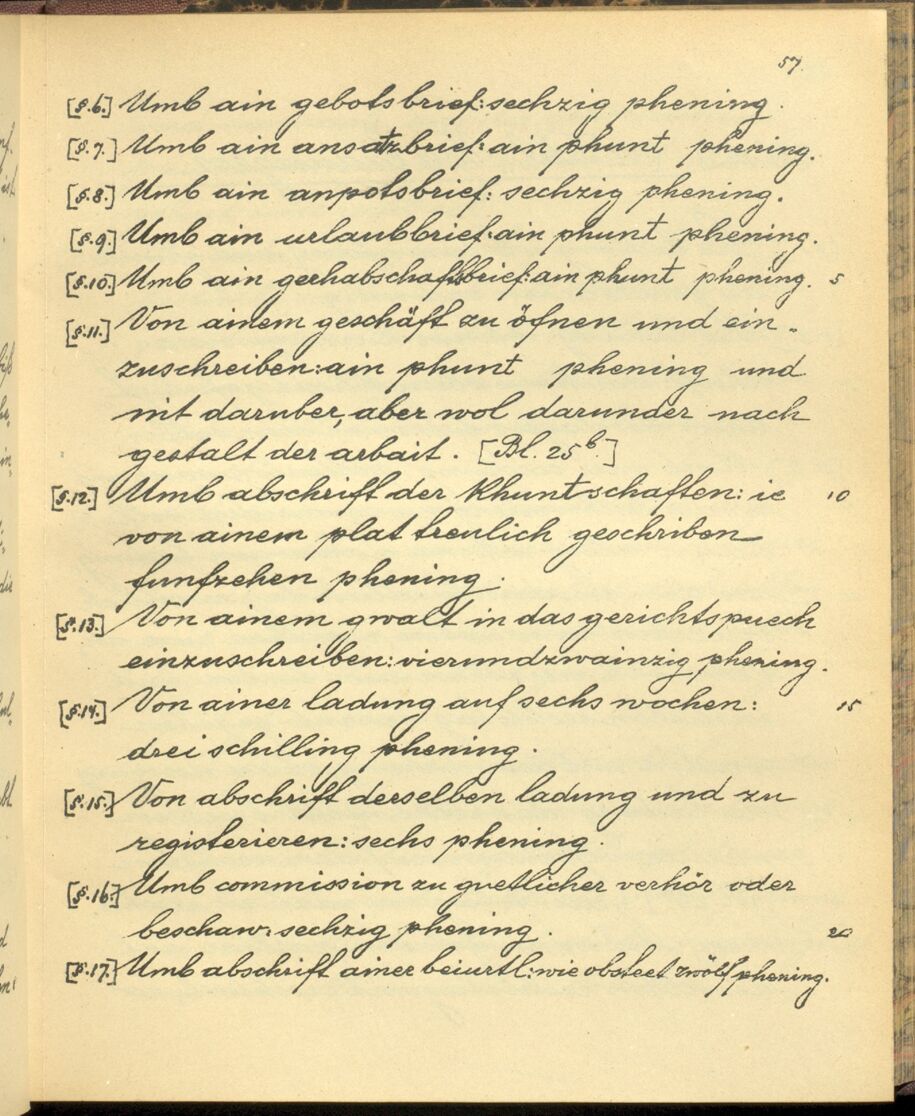 57.
[§.6.] Umb ain gebotsbrief: sechzig phening.
[§.7.] Umb ain ansatzbrief: ain phunt phening.
[§.8.] Umb ain anpotsbrief: sechzig phening.
[§.9.] Umb ain urlaubbrief: ain phunt phening.
[§.10.] Umb ain gerhabschaftbrief: ain phunt phening. 5
[§.11.] Von ainem geschäft zu öfnen und ein-
zuschreiben: ain phunt phening und
nit daruber, aber wol darunder nach
gestalt der arbait. [Bl. 25b.]
[§.12.] Umb abschrift der khuntschaften: ie 10
von ainem plat treulich geschriben
funfzehen phening.
[§.13.] Von ainem gwalt in das gerichtspuech
einzuschreiben: vierundzwainzig phening.
[§.14.] Von ainer ladung auf sechs wochen: 15
drei schilling phening.
[§.15.] Von abschrift derselben ladung und zu
registerieren: sechs phening.
[§.16.] Umb commission zu guetlicher verhör oder
beschaw: sechzig phening. 20
[§.17.] Umb abschrift ainer beiurtl: wie obsteet zwölf phening.